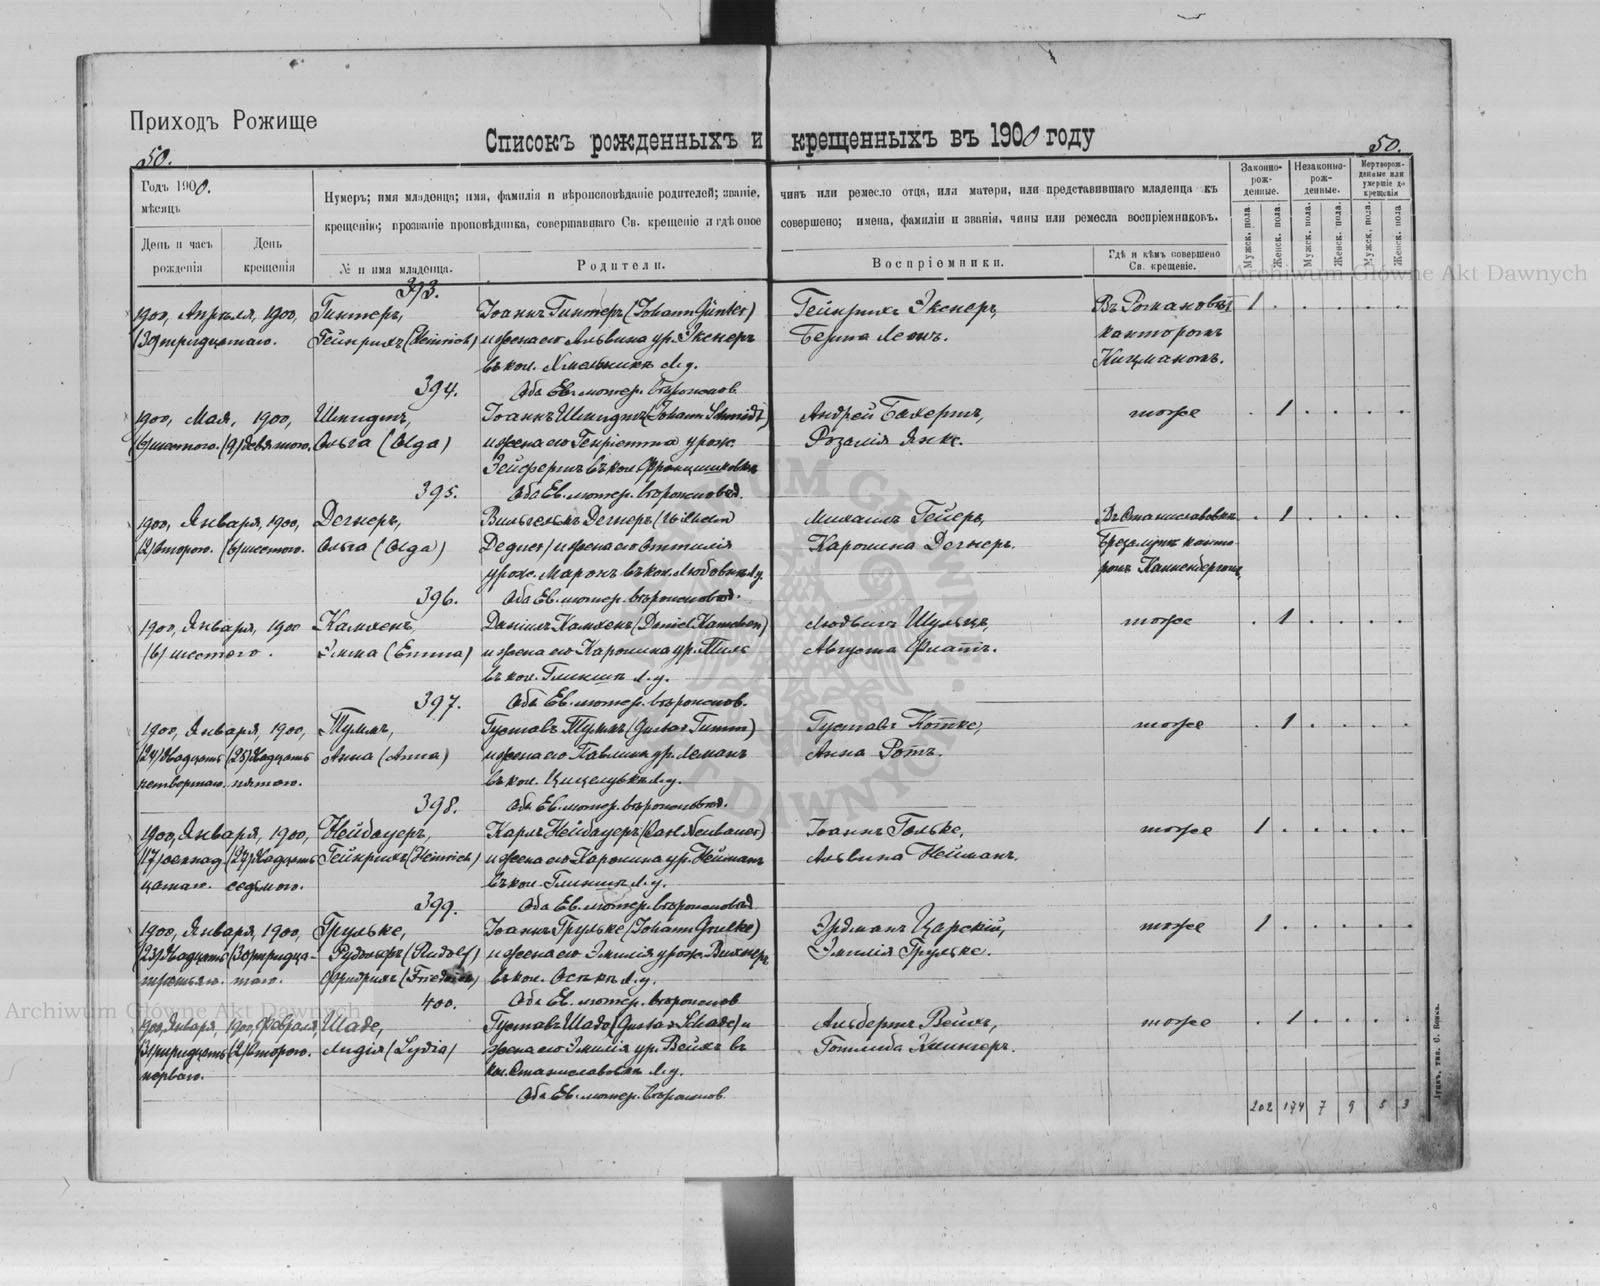 Приходъ Рожище
Списокъ рожденныхъ и крещенныхъ въ 1900 году
50.
50.
Годъ 1900.
мѣсяцъ
День и часъ рожденія
День крещенія
Нумеръ; имя младенца; имя, фамилія и вѣроисповѣданіе родителей; званіе, чинъ или ремесло отца, или матери, или представившаго младенца къ
крещенію; прозваніе проповѣдника, совершавшаго Св. крещеніе и гдѣ оное совершено; имена, фамиліи и званія, чины или ремесла воспріемниковъ.
№ и имя младенца.
Родители.
Воспріемники.
Гдѣ и кѣмъ совершено Св. крещеніе.
Законно-рож-денные.
Незаконно-рож-денные.
Мертворож-денные или умершіе до крещенія
Мужск. пола.
Женск. пола.
Мужск. пола.
Женск. пола.
Мужск. пола.
Женск. пола.
393.
1900, Апрѣля, 1900, Гинтеръ, Іоаннъ Гинтеръ (Johann Günter) Гейнрихъ Экснеръ, Въ 1
(30) тридцатаго. Гейнрихъ (Heinrich) и жена его Альвина ур. Экснеръ Берта Леонъ. канторомъ
въ кол. Хмельникъ Л.у. Кицманомъ.
394. Оба Ев. лютер. вѣроисповѣд.
1900, Мая, 1900, Шмидтъ, Іоаннъ Шмидтъ (Johann Schmidt) Андрей Бахертъ, тоже 1
(6) шестого. (9) девятого. Ольга (Olga) и жена его Генріетта урож. Розалія Янке.
Зейфертъ въ кол. Францишковкѣ
395. Оба Ев. лютер. вѣроисповѣд.
1900, Января, 1900, Дегнеръ, Вильгельмъ Дегнеръ (Wilhelm Михаилъ Гейеръ, Въ Станиславовкѣ 1
(2) второго. (6) шестого. Ольга (Olga) Degner) и жена его Оттилія Каролина Дегнеръ. канто-
урож. Маронъ въ кол. Любовкѣ Л.у. ромъ
396. Оба Ев. лютер. вѣроисповѣд.
1900, Января, 1900 Камхенъ, Даніилъ Камхенъ (Daniel Kamchen) Людвигъ Шульцъ, тоже 1
(6) шестого. Эмма (Emma) и жена его Каролина ур. Тильс Августа
въ кол. Глинищѣ Л.у.
397. Оба Ев. лютер. вѣроисповѣд.
1900, Января, 1900, Туммъ, Густавъ Туммъ (Gustav Tumm) Густавъ тоже 1
(24) двадцать (25) двадцать Анна (Anna) и жена его Павлина ур. Леманъ Анна Ротъ.
четвертаго. пятаго. въ кол. Л.у.
398. Оба Ев. лютер. вѣроисповѣд.
1900, Января, 1900, Нейбауеръ, Карлъ Нейбауеръ (Carl Neubauer) Іоаннъ Гольке, тоже 1
(17) семнад- (27) двадцать Гейнрихъ (Heinrich) и жена его Каролина ур. Нейманъ Альвина Нейманъ.
цатаго. седьмого. въ кол. Глинищѣ Л.у.
399. Оба Ев. лютер. вѣроисповѣд.
1900, Января, 1900, Грульке, Іоаннъ Грульке (Johann Grulke) Эрдманъ Царскій, тоже 1
(23) двадцать (30) тридца- Рудольфъ (Rudolf) и жена его Эмилія урож. Эмилія Грульке.
третьяго. таго. Фридрихъ (Friedrich) въ кол. Осѣкѣ Л.у.
400. Оба Ев. лютер. вѣроисповѣд.
1900, Января, 1900, Февраля, Шаде, Густавъ Шаде (Gustav Schade) и Альбертъ Вейхъ, тоже 1
(31) тридцать (2) второго. Лидія (Lydia) жена его Эмилія ур. Вейхъ въ Готлиба Клингеръ.
перваго. кол. Станиславовкѣ Л.у.
Оба Ев. лютер. вѣроисповѣд.
202 174 7 9 5 3
Archiwum Główne Akt Dawnych
Archiwum Główne Akt Dawnych